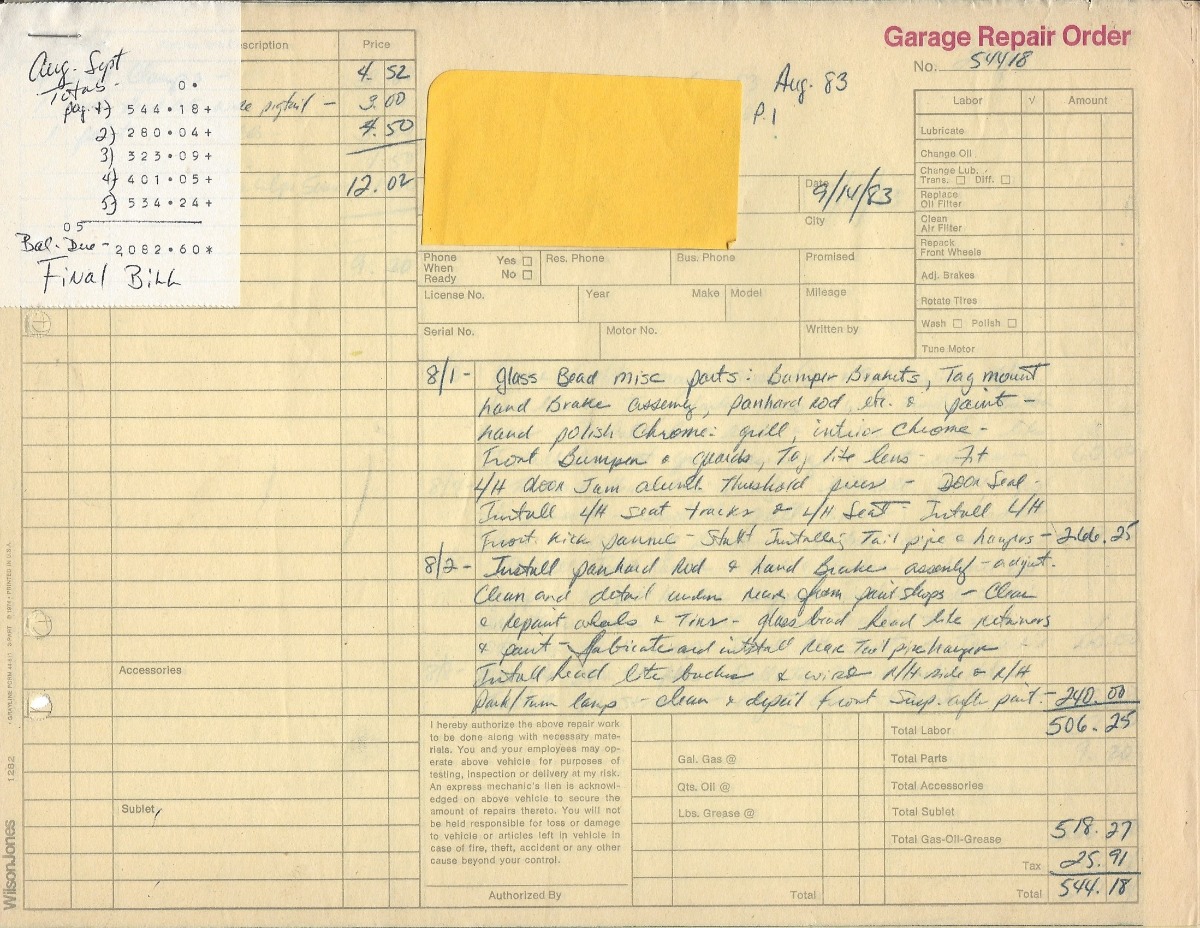 Aug. Sept
Totals -
0.
pag. 1) 544.18+
2) 280.04+
3) 323.09+
4) 401.05+
5) 534.24+
05
Bal. Due - 2082.60*
Final Bill
scription Price
4.52
pigtail - 3.00
4.50
12.02
Garage Repair Order
No. 54418
Aug. 83
P.1
Date 9/14/83
City
Phone When Ready Yes No
Res. Phone
Bus. Phone
Promised
License No.
Year
Make
Model
Mileage
Serial No.
Motor No.
Written by
Labor √ Amount
Lubricate
Change Oil
Change Lub.
Trans. Diff.
Replace
Oil Filter
Clean
Air Filter
Repack
Front Wheels
Adj. Brakes
Rotate Tires
Wash Polish
Tune Motor
8/1 - Glass Bead misc parts: Bumper Brakets, Tag mount
hand Brake assembly, panhard Rod etc. & paint -
hand polish Chrome: grill, intrior Chrome -
Front Bumper & guards, Tag lite lens - Fit
L/H door Jam alum. Threshold pieces - Door Seal -
Install L/H seat tracks & L/H Seat - Install L/H
Front kick pannel - Start Installing Tail pipe & hangers - 266.25
8/2 - Install panhard Rod & hand Brake assembly - adjust.
Clean and detail under rear from paint shops - Clean
& repaint wheels & Tires - glass bead head lite retainers
& paint - fabricate and intstall Rear Tail pipe hanger
Install head lite buckes & wires R/H side & R/H
Park/Turn lamp - clean & Front Susp. after paint - 240.00
Accessories
Sublet
I hereby authorize the above repair work
to be done along with necessary mate-
rials. You and your employees may op-
erate above vehicle for purposes of
testing, inspection or delivery at my risk.
An express mechanic's lien is acknowl-
edged on above vehicle to secure the
amount of repairs thereto. You will not
be held responsible for loss or damage
to vehicle or articles left in vehicle in
case of fire, theft, accident or any other
cause beyond your control.
Authorized By
Gal. Gas @
Qts. Oil @
Lbs. Grease @
Total
Total Labor 506.25
Total Parts
Total Accessories
Total Sublet
Total Gas-Oil-Grease 518.27
Tax 25.91
Total 544.18
WilsonJones
1282
PRINTED IN U.S.A.